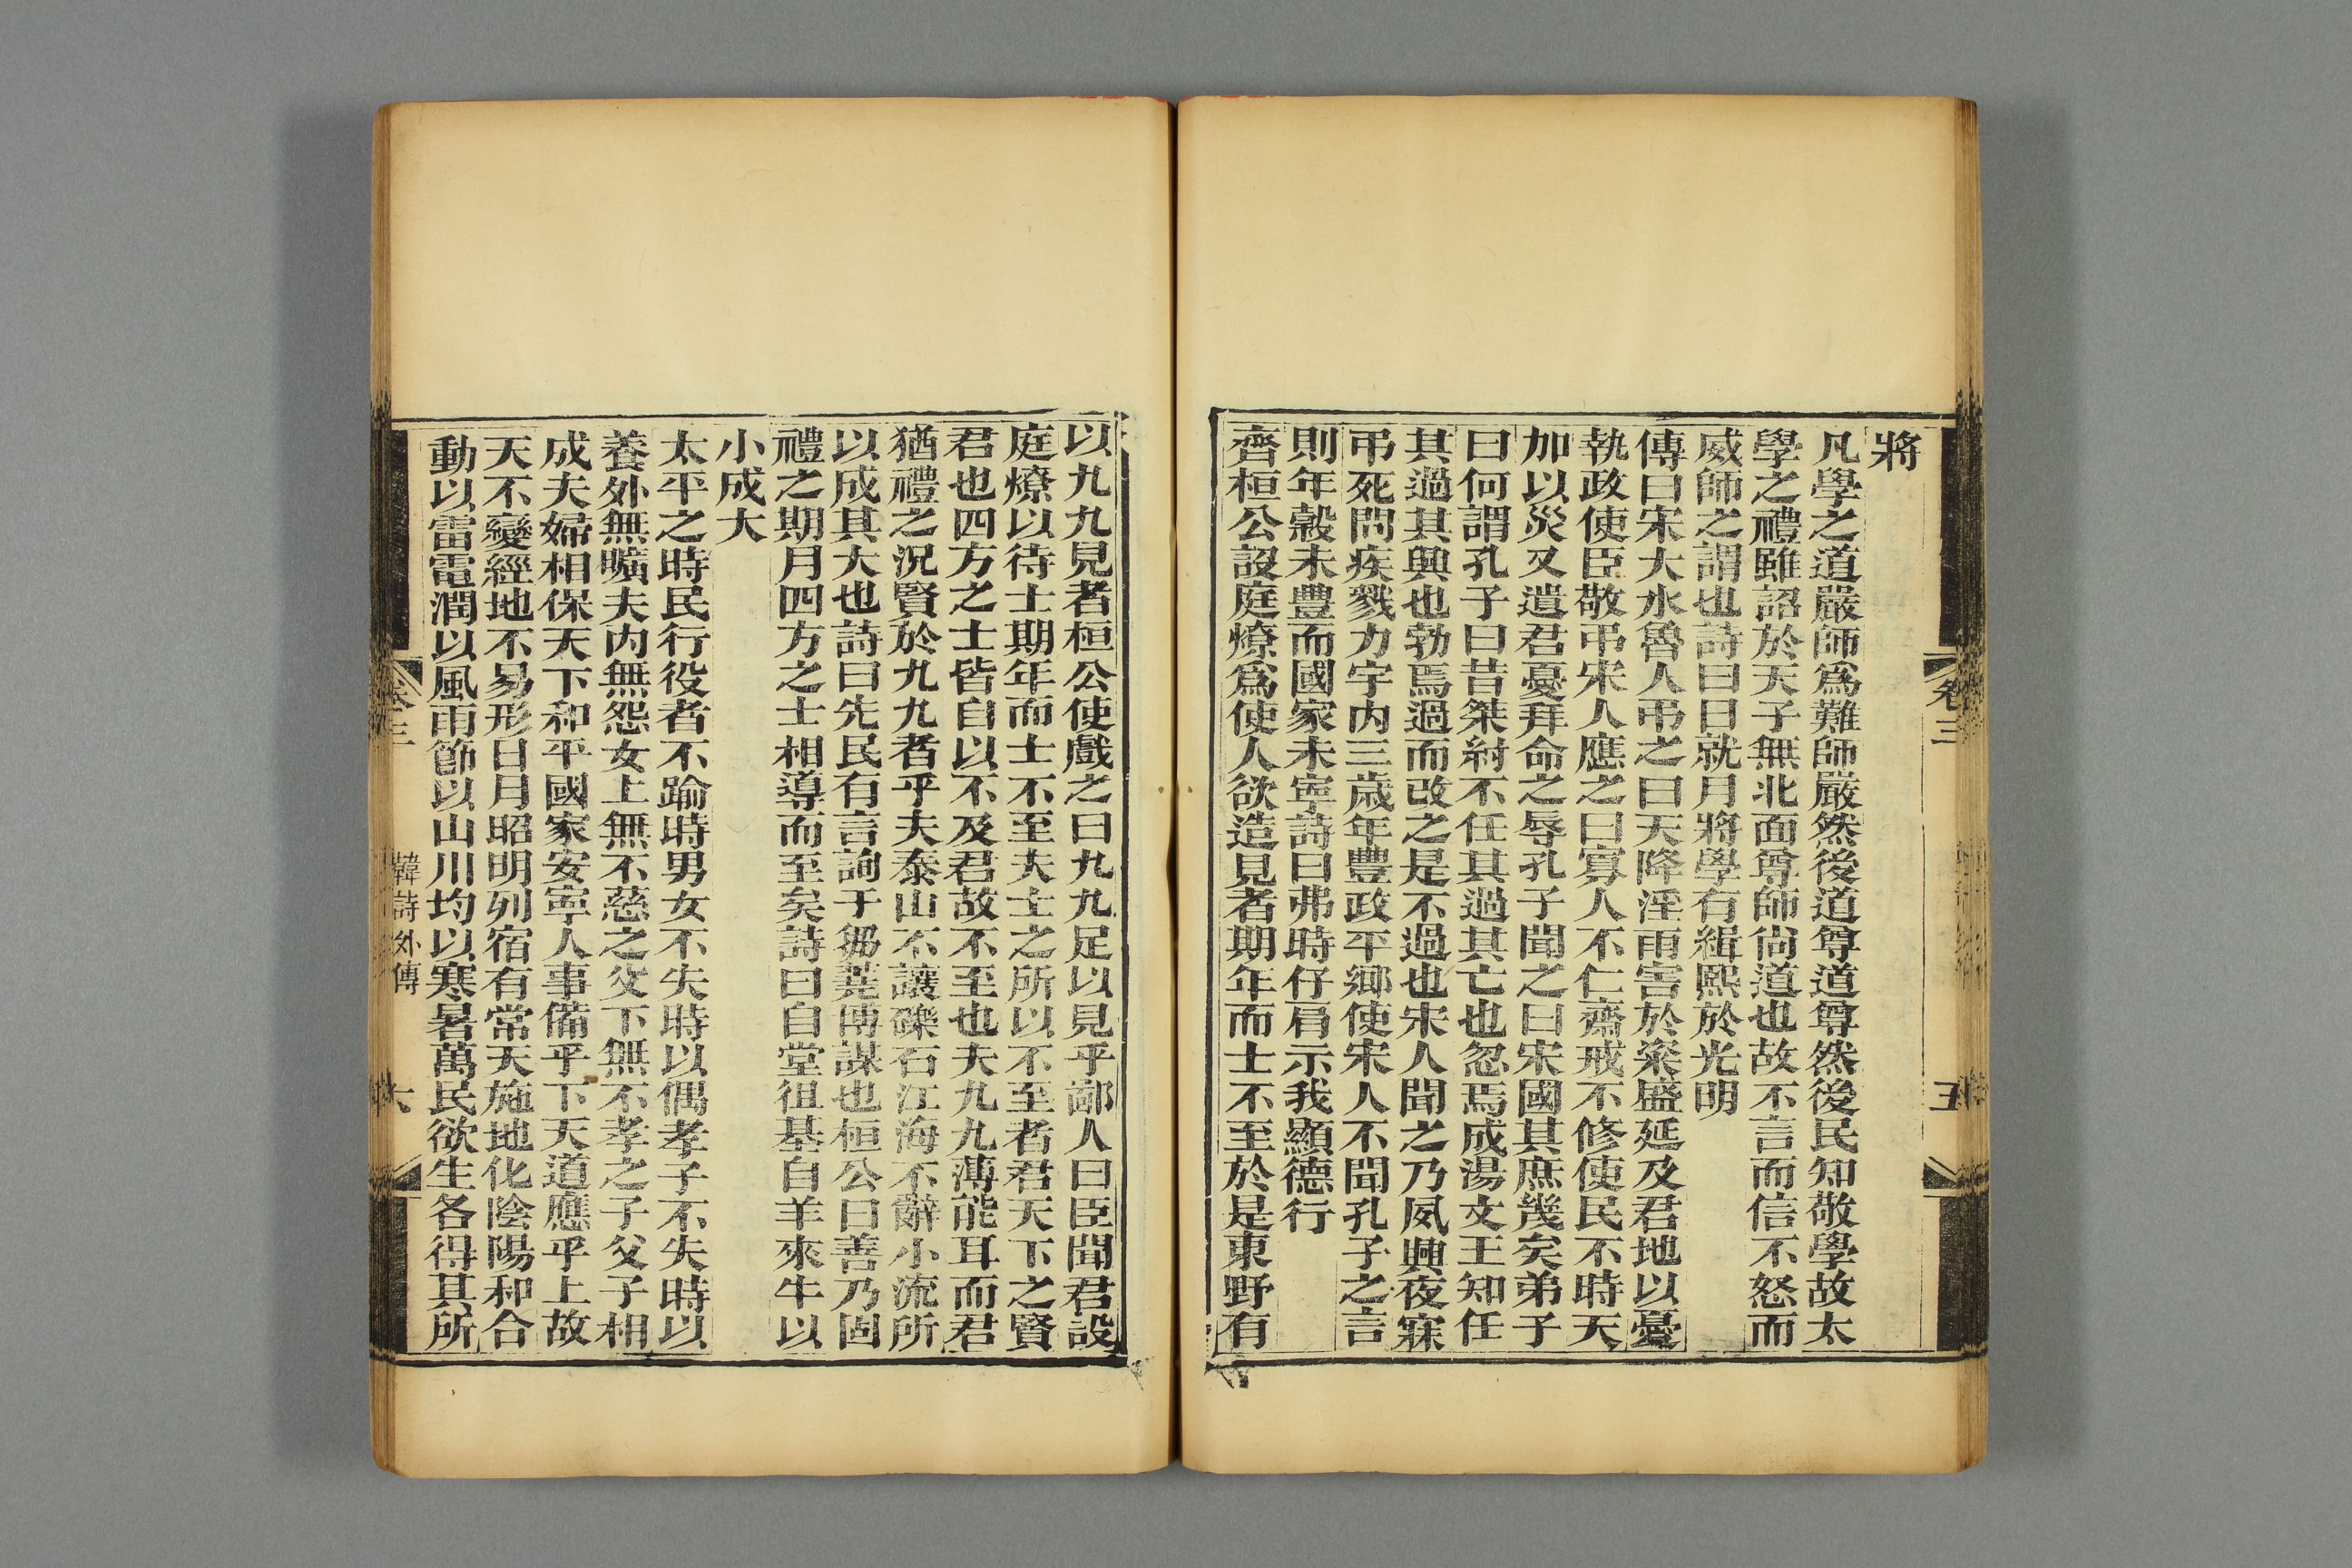 將
凡學之道嚴師爲難師嚴然後道尊道尊然後民知敬學故太
學之禮雖詔於天子無北面尊師尚道也故不言而信不怒而
威師之謂也詩曰日就月將學有緝熙於光明
傳曰宋大水魯人弔之曰天降淫雨害於粢盛延及君地以憂
執政使臣敬弔宋人應之曰寡人不仁齋戒不修使民不時天
加以災又遺君憂拜命之辱孔子聞之曰宋國其庶幾矣弟子
曰何謂孔子曰昔桀紂不任其過其亡也忽焉成湯文王知任
其過其興也勃焉過而改之是不過也宋人聞之乃夙興夜寐
弔死問疾戮力宇内三歲年豐政平鄉使宋人不聞孔子之言
則年穀未豐而國家未寧詩曰弗時仔肩示我顯德行
齊桓公設庭燎爲使人欲造見者期年而士不至於是東野有
卷三
五
以九九見者桓公使戲之曰九九足以見乎鄙人曰臣聞君設
庭燎以待士期年而士不至夫士之所以不至者君天下之賢
君也四方之士皆自以不及君故不至也夫九九薄能耳而君
猶禮之況賢於九九者乎夫泰山不讓礫石江海不辭小流所
以成其大也詩曰先民有言詢于芻蕘博謀也桓公曰善乃固
禮之期月四方之士相導而至矣詩曰自堂徂基自羊來牛以
小成大
太平之時民行役者不踰時男女不失時以偶孝子不失時以
養外無曠夫内無怨女上無不慈之父下無不孝之子父子相
成夫婦相保天下和平國家安寧人事備乎下天道應乎上故
天不變經地不易形日月昭明列宿有常天施地化陰陽和合
動以雷電潤以風雨節以山川均以寒暑萬民欲生各得其所
卷三
韓詩外傳
六